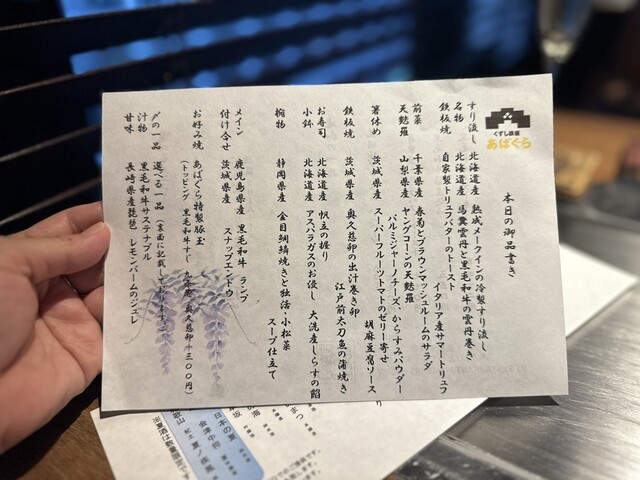 くずし鉄板
あばぐら
本日の御品書き
すり流し 北海道産 熟成メークインの冷製すり流し
名物 北海道産 馬糞雲丹と黒毛和牛の雲丹巻き
鉄板焼 自家製トリュフバターのトースト
イタリア産サマートリュフ
前菜 千葉県産 春菊とブラウンマッシュルームのサラダ
天麩羅 山梨県産 ヤングコーンの天麩羅
パルミジャーノチーズ、からすみパウダー
箸休め 茨城県産 スーパーフルーツトマトのゼリー寄せ
胡麻豆腐ソース
鉄板焼 茨城県産 奥久慈卵の出汁巻き卵
江戸前太刀魚の蒲焼き
お寿司 北海道産 帆立の握り
小鉢 北海道産 アスパラガスのお浸し 大洗産しらすの餡
椀物 静岡県産 金目鯛鱗焼きと独活・小松菜
スープ仕立て
メイン 鹿児島県産 黒毛和牛 ランプ
付け合せ 茨城県産 スナップエンドウ
お好み焼 あばぐら特製豚玉
(トッピング 黒毛和牛すじ 九条葱 奥久慈卵+三〇〇円)
〆の一品 選べる一品 (裏面に記載しております)
汁物 黒毛和牛サステナブル
甘味 長崎県産琵琶 レモンバームのジュレ
日本の夏
会津中将
夏ノ疾風
夏酒は数量限定です